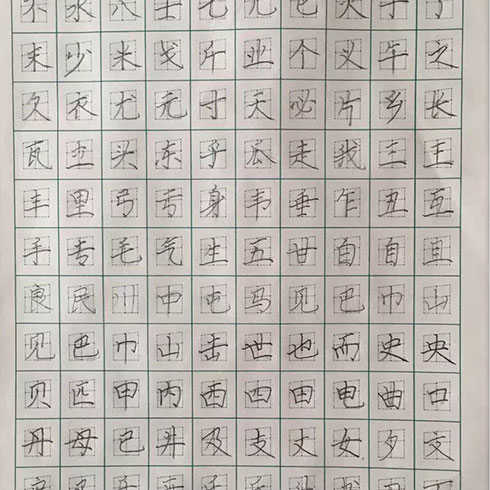 永 士 七 九 电 大 子 了
末 少 米 戈 斤 业 个 义 午 之
久 衣 尤 元 寸 天 必 片 乡 长
瓦 头 东 子 瓜 走 我 三 王
丰 里 弓 亏 身 韦 垂 乍 丑 互
手 专 毛 气 生 五 甘 自 自 且
良 民 川 中 屯 马 见 巴 巾 山
见 巴 巾 山 击 世 也 而 史 央
贝 匹 甲 内 西 四 田 电 曲 口
丹 母 已 井 及 支 丈 女 夕 文